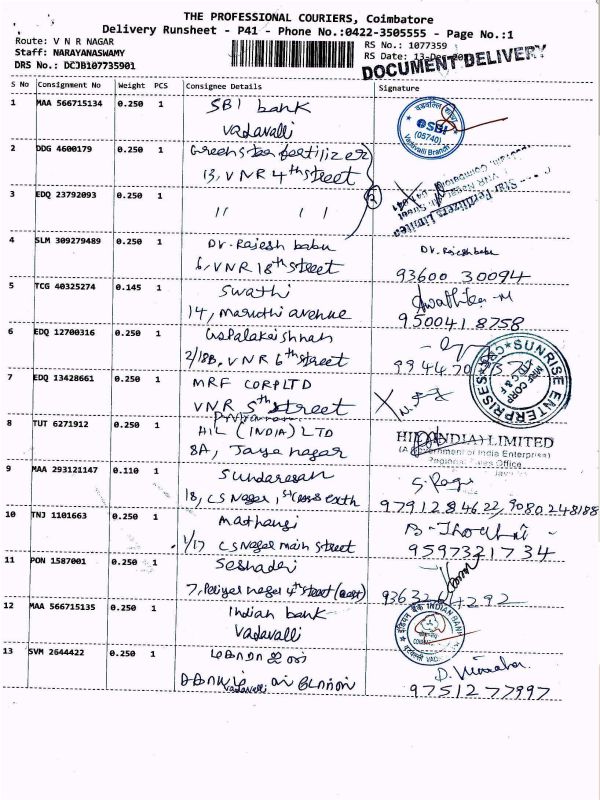 THE PROFESSIONAL COURIERS, Coimbatore
Delivery Runsheet - P41 - Phone No.:0422-3505555 - Page No.:1
Route: V N R NAGAR
RS No.: 1077359
Staff: NARAYANASWAMY
RS Date: 13-Dec
DRS No.: DCJB107735901
DOCUMENT DELIVERY
S No Consignment No Weight PCS Consignee Details Signature
1 MAA 566715134 0.250 1 SBI bank
Vadavalli
SBI
(05740)
Vadavalli Branch
2 DDG 4600179 0.250 1 Greenstar fertilizer
13, VNR 4th street
3 EDQ 23792093 0.250 1 " "
2
Star Fertilizers Limited
4 SLM 309279489 0.250 1 Dr. Rajesh babu Dr. Rajesh babu
6, VNR 18th street 93600 30094
5 TCG 40325274 0.145 1 Swathi
14, Maruthi avenue 950041 8758
6 EDQ 12700316 0.250 1 Gopalakrishnan
2/18B, VNR 6th street
SUNRISE ENTERPRISES
MRF CORP
7 EDQ 13428661 0.250 1 MRF CORP LTD
VNR 5th street
8 TUT 6271912 0.250 1 HIL (INDIA) LTD
8A, Jaya nagar
HIL (INDIA) LIMITED
(A Government of India Enterprise)
Regional Sales Office
9 MAA 293121147 0.110 1 Sundaresan
18, CS Nagar, 1st cross 97912 84622, 90802 48188
10 TNJ 1101663 0.250 1 Mathangi
1/17 CS Nagar main street 9597321734
11 PON 1587001 0.250 1 Seshadri
7, Periyar nagar 4th street (east)
12 MAA 566715135 0.250 1 Indian bank
Vadavalli
INDIAN BANK
13 SVM 2644422 0.250 1
vadavalli
97512 77997